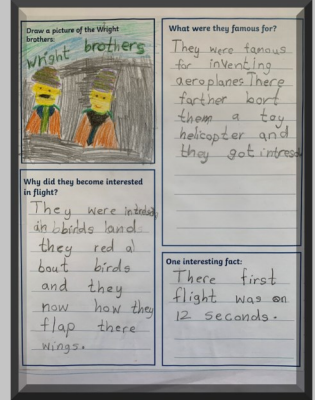 Draw a picture of the Wright
brothers:
wright brothers
What were they famous for?
They were famous
for inventing
aeroplanes There
farther bort
them a toy
helicopter and
they got
Why did they become interested
in flight?
They were
birds land
they red a
bout birds
and they
now how they
flap there
wings.
One interesting fact:
There first
flight was on
12 seconds.